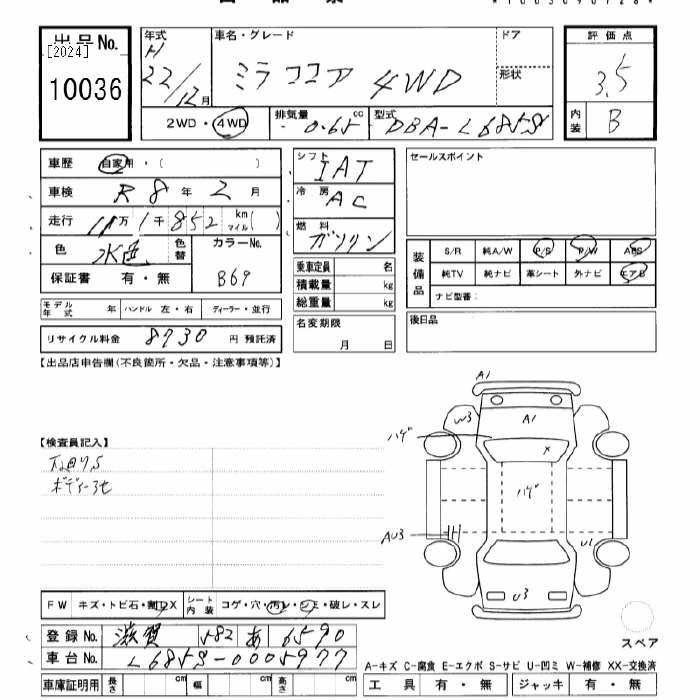 出品No.
[2024]
10036
年式 車名・グレード ドア
H
22/12月 ミラココア 4WD 形状
2WD・4WD 排気量 0.65 cc 型式 DBA-L685S
評価点
3.5
内装 B
車歴 自家用・( )
車検 R8年2月
走行 11万1千852 km マイル( )
色 水色 色替 カラーNo. B69
保証書 有・無
モデル年式 年 ハンドル 左・右 ディーラー・並行
リサイクル料金 8730 円 預託済
シフト IAT
冷房 AC
燃料 ガソリン
乗車定員 名
積載量 kg
総重量 kg
名変期限
月 日
セールスポイント
装備品
S/R 純A/W P/S P/W ABS
純TV 純ナビ 革シート 外ナビ エアB
ナビ型番:
後日品
【出品店申告欄(不良箇所・欠品・注意事項等)】
【検査員記入】
ボディーうt
A1
W3
A1
ハゲ
×
ハゲ
AU3
U1
U3
スペア
FW キズ・トビ石・割・X シート内装 コゲ・穴・汚レ・シミ・破レ・スレ
登録No. 滋賀 582 あ 6590
車台No. L685S-0005977
車庫証明用 長さ cm 幅 cm 高さ cm
A-キズ C-腐食 E-エクボ S-サビ U-凹ミ W-補修 XX-交換済
工具 有・無 ジャッキ 有・無